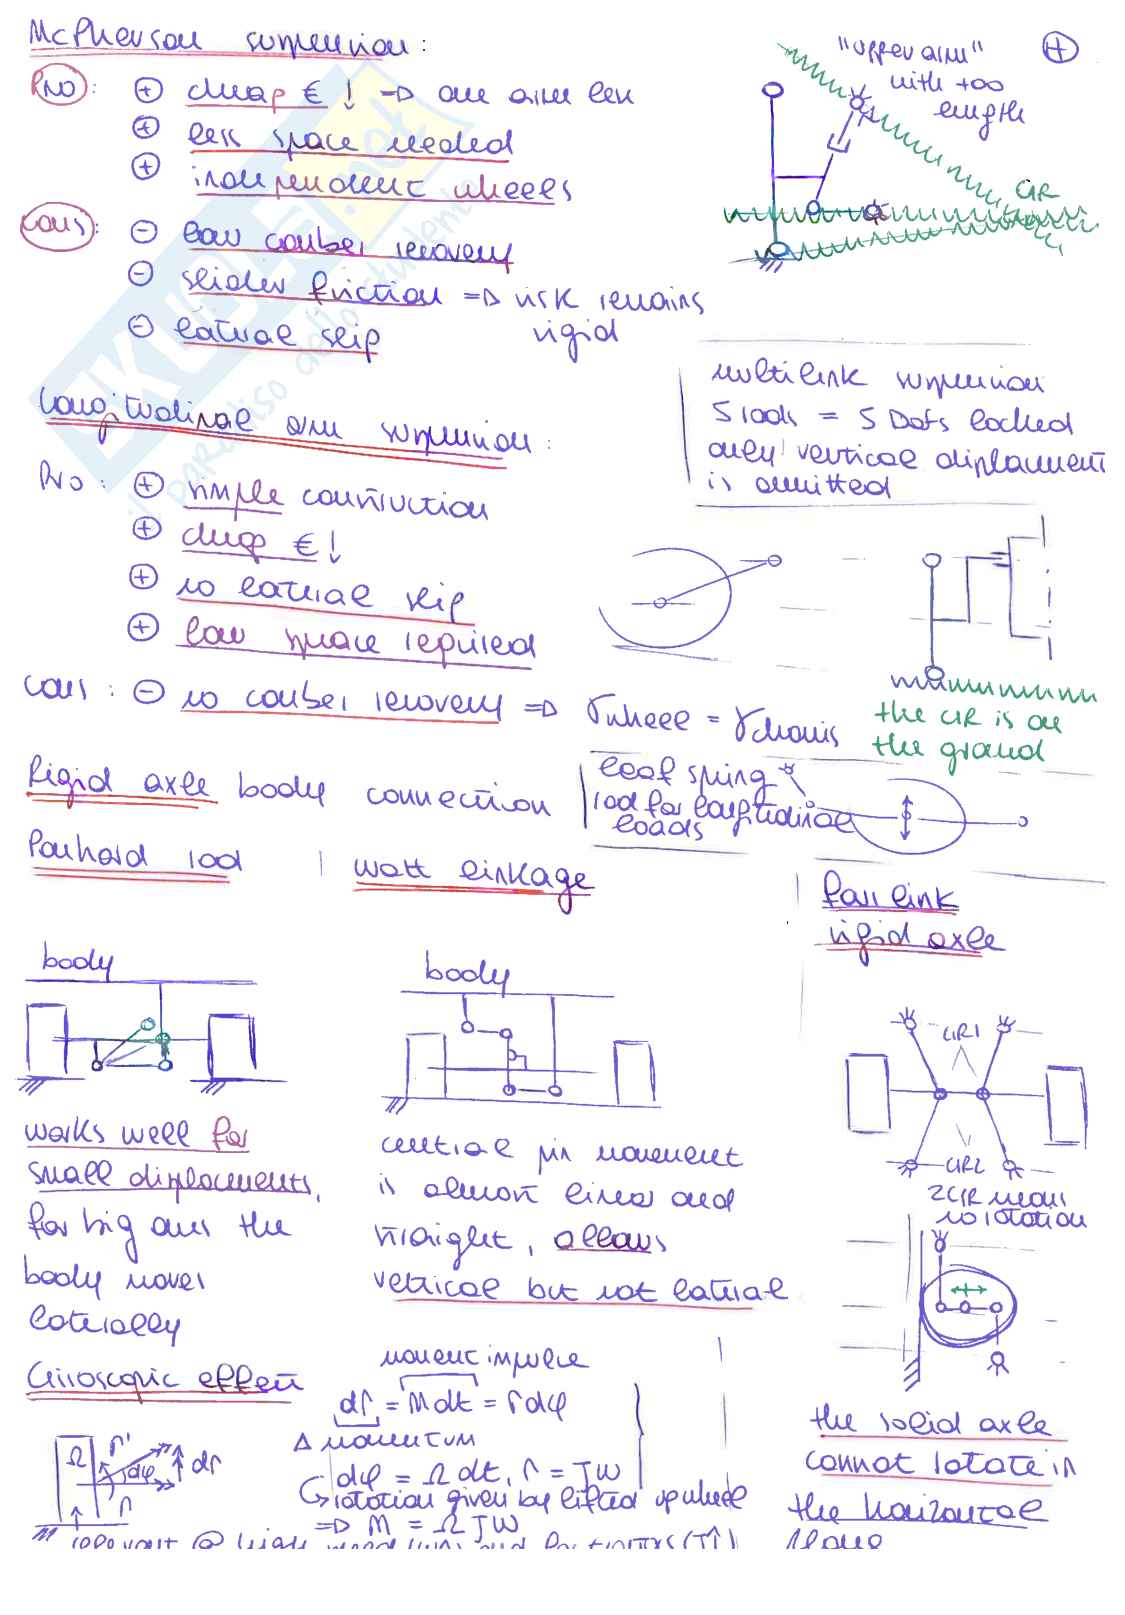 McPherson suspension:
PRO: + cheap € ↓ => one arm less
+ less space needed
+ independent wheels
cons: - low camber recovery
- slider friction => risk remains
rigid
- lateral slip
"upper arm"
with +∞
length
+
CIR
multilink suspension
5 rods = 5 Dofs locked
only vertical displacement
is omitted
Longitudinal arm suspension:
Pro: + simple construction
+ cheap € ↓
+ no lateral slip
+ low space required
cons: - no camber recovery => γwheel = γchassis
the CIR is on
the ground
Rigid axle body connection
leaf spring
rod for longitudinal
loads
Panhard rod | watt linkage
four link
rigid axle
body
body
CIR1
CIR2
2CIR means
no rotation
works well for
small displacements,
for big ones the
body moves
laterally
central pin movement
is almost linear and
straight, allows
vetrical but not lateral
the solid axle
cannot rotate in
the horizontal
plane
Giroscopic effect
moment impulse
dΓ = Mdt = Γdφ
Δ momentum
dφ = Ω dt, Γ = Jω
↳ rotation given by lifted up wheel
=> M = Ω J ω
Ω Γ' dφ dΓ
Γ
SKUOLA.net
il paradiso dello studente